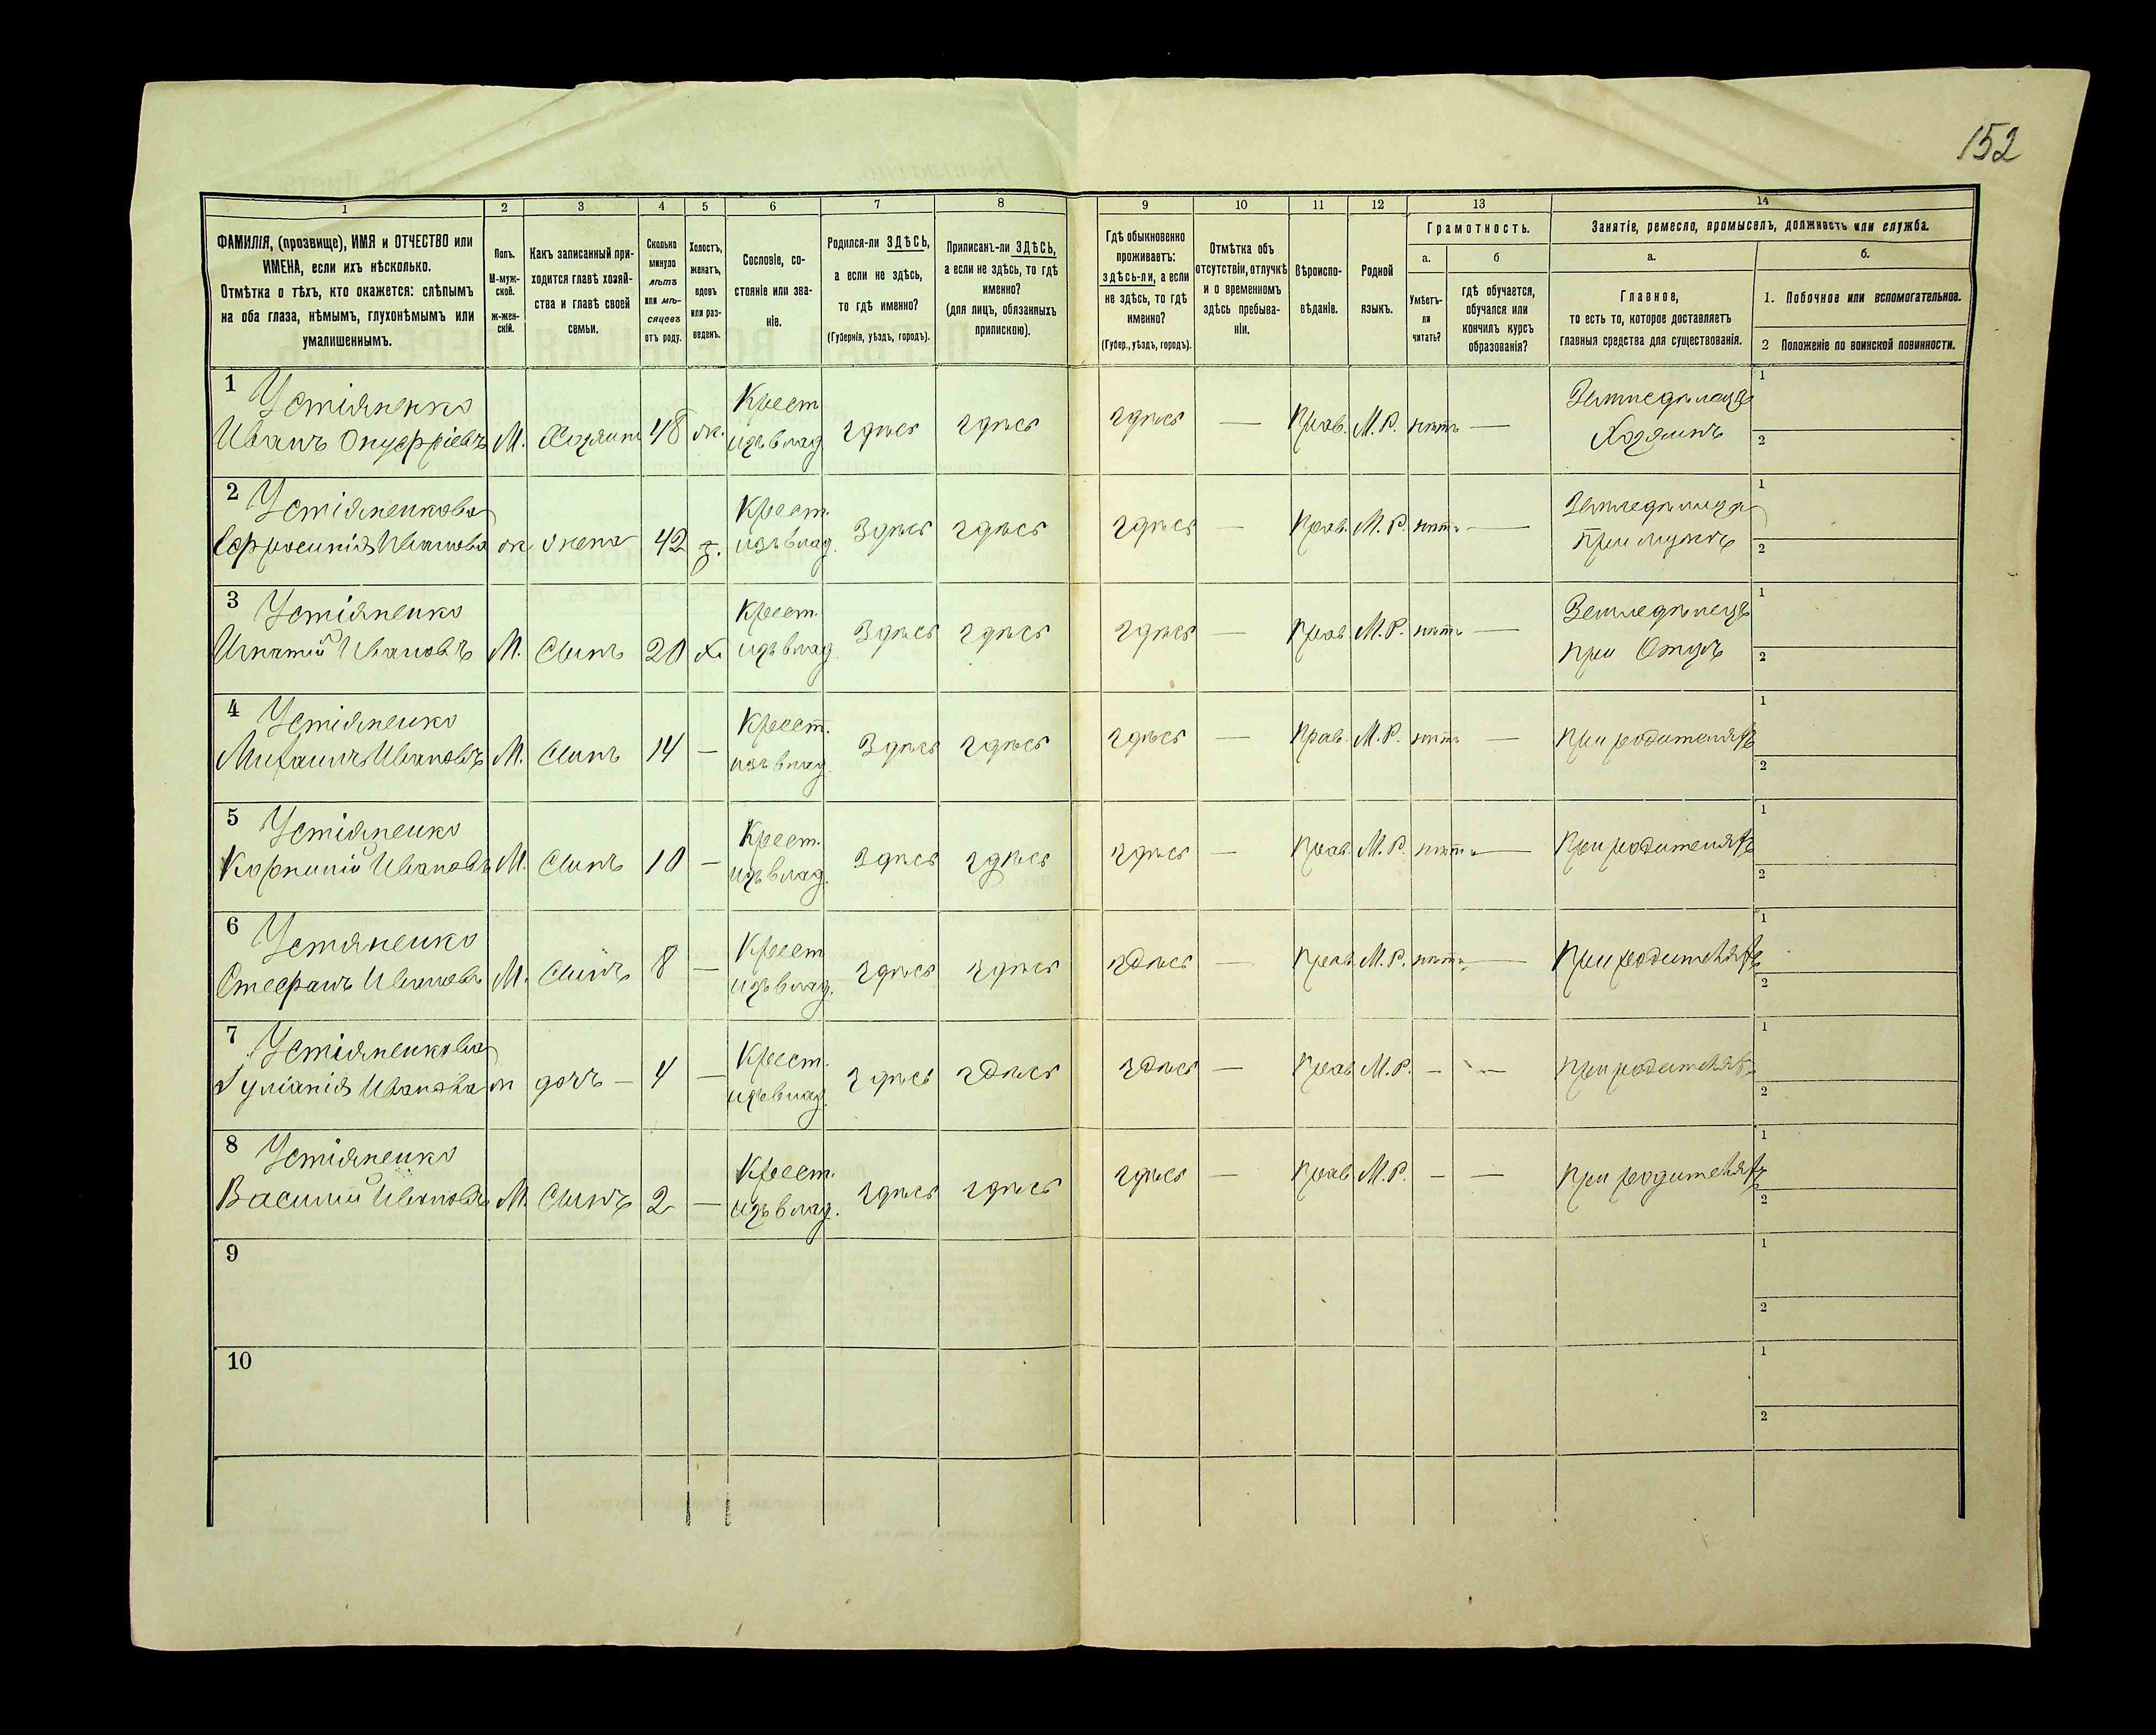 152
1 2 3 4 5 6 7 8 9 10 11 12 13 14
ФАМИЛІЯ, (прозвище), ИМЯ и ОТЧЕСТВО или
ИМЕНА, если ихъ нѣсколько.
Отмѣтка о тѣхъ, кто окажется: слѣпымъ
на оба глаза, нѣмымъ, глухонѣмымъ или
умалишеннымъ.
Полъ.
М-муж-
ской.
ж-жен-
скій.
Какъ записанный при-
ходится главѣ хозяй-
ства и главѣ своей
семьи.
Сколько
минуло
лѣтъ
или мѣ-
сяцевъ
отъ роду.
Холостъ,
женатъ,
вдовъ
или раз-
веденъ.
Сословіе, со-
стояніе или зва-
ніе.
Родился-ли ЗДѢСЬ,
а если не здѣсь,
то гдѣ именно?
(Губернія, уѣздъ, городъ).
Приписанъ-ли ЗДѢСЬ,
а если не здѣсь, то гдѣ
именно?
(для лицъ, обязанныхъ
припискою).
Гдѣ обыкновенно
проживаетъ:
здѣсь-ли, а если
не здѣсь, то гдѣ
именно?
(Губер., уѣздъ, городъ).
Отмѣтка объ
отсутствіи, отлучкѣ
и о временномъ
здѣсь пребыва-
ніи.
Вѣроиспо-
вѣданіе.
Родной
языкъ.
Грамотность.
а.
Умѣетъ-
ли
читать?
б
гдѣ обучается,
обучался или
кончилъ курсъ
образованія?
Занятіе, ремесло, промыселъ, должность или служба.
а.
Главное,
то есть то, которое доставляетъ
главныя средства для существованія.
б.
1. Побочное или вспомогательное.
2 Положеніе по воинской повинности.
1 Устіяненко Крест. Земледѣлецъ 1
Иванъ Онуфріевъ М. Хозяинъ 48 ж. изъ влад. здѣсь здѣсь здѣсь — Прав. М. Р. нѣтъ — Хозяинъ 2
2 Устіяненкова Крест. Земледѣлица 1
Евфросинія Иванова ж жена 42 з. изъ влад. Здѣсь здѣсь здѣсь — Прав. М. Р. нѣтъ — при мужѣ 2
3 Устіяненко Крест. Земледѣлецъ 1
Игнатій Ивановъ М. Сынъ 20 х. изъ влад. Здѣсь здѣсь здѣсь — Прав. М. Р. нѣтъ — при Отцѣ 2
4 Устіяненко Крест. 1
Михаилъ Ивановъ М. Сынъ 14 — изъ влад. Здѣсь здѣсь здѣсь — Прав. М. Р. нѣтъ — при родителяхъ 2
5 Устіяненко Крест. 1
Корнилій Ивановъ М. Сынъ 10 — изъ влад. Здѣсь здѣсь здѣсь — Прав. М. Р. нѣтъ — При родителяхъ 2
6 Устяненко Крест 1
Стефанъ Ивановъ М. Сынъ 8 — изъ влад. здѣсь здѣсь здѣсь — Прав. М. Р. нѣтъ — При родителяхъ 2
7 Устіяненкова Крест. 1
Іуліанія Иванова ж дочь — 4 — изъ влад. здѣсь здѣсь здѣсь — Прав М. Р. — — при родителяхъ 2
8 Устіяненко Крест. 1
Василій Ивановъ М. Сынъ 2 — изъ влад. здѣсь здѣсь здѣсь — Прав М. Р. — — при родителяхъ 2
9 1
2
10 1
2